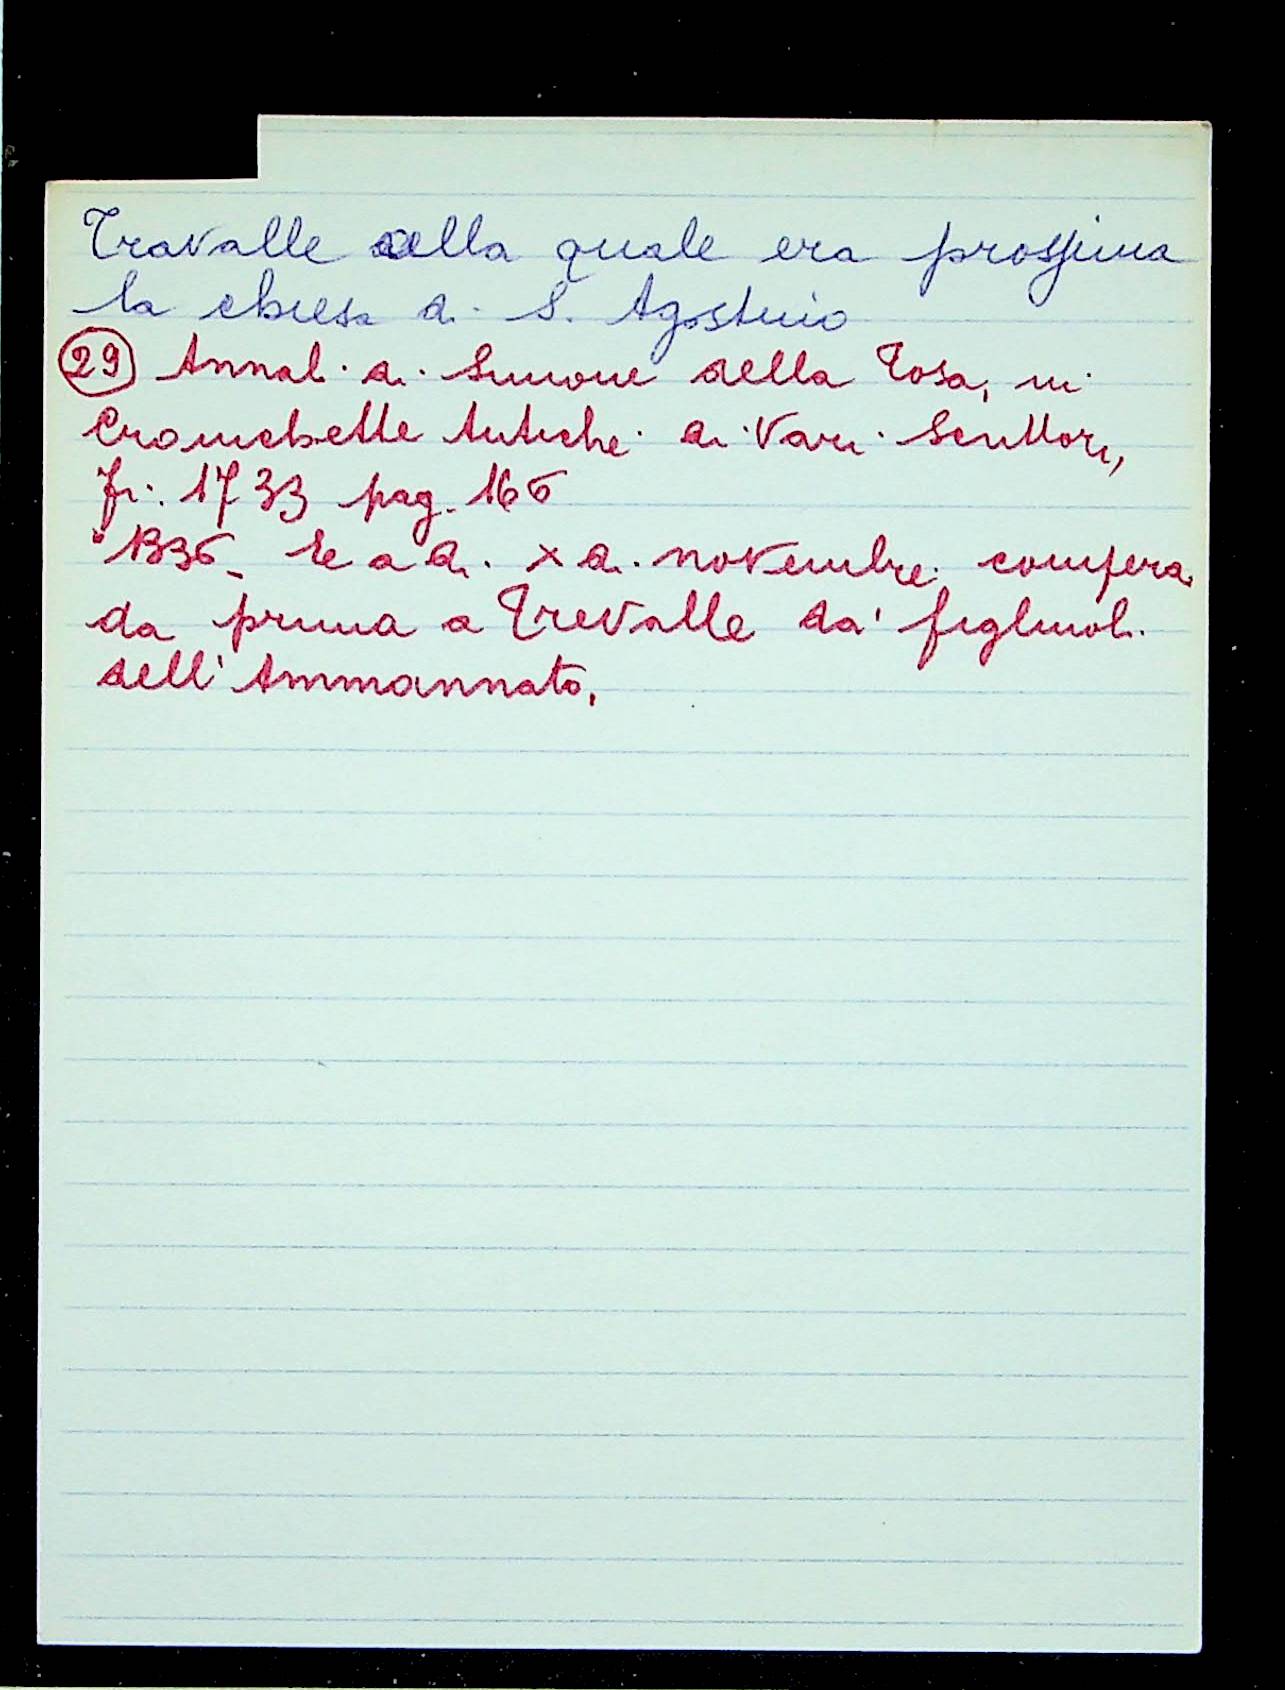 Travalle alla quale era prossima
la chiesa di S. Agostino
29 Annali di Simone della Tosa, in
Cronichette Antiche di Vari Scrittori,
Fi. 1733 pag. 166
"1336_ E a dì X di novembre compera
da prima a Trevalle da' figliuoli
dell'Ammannato,